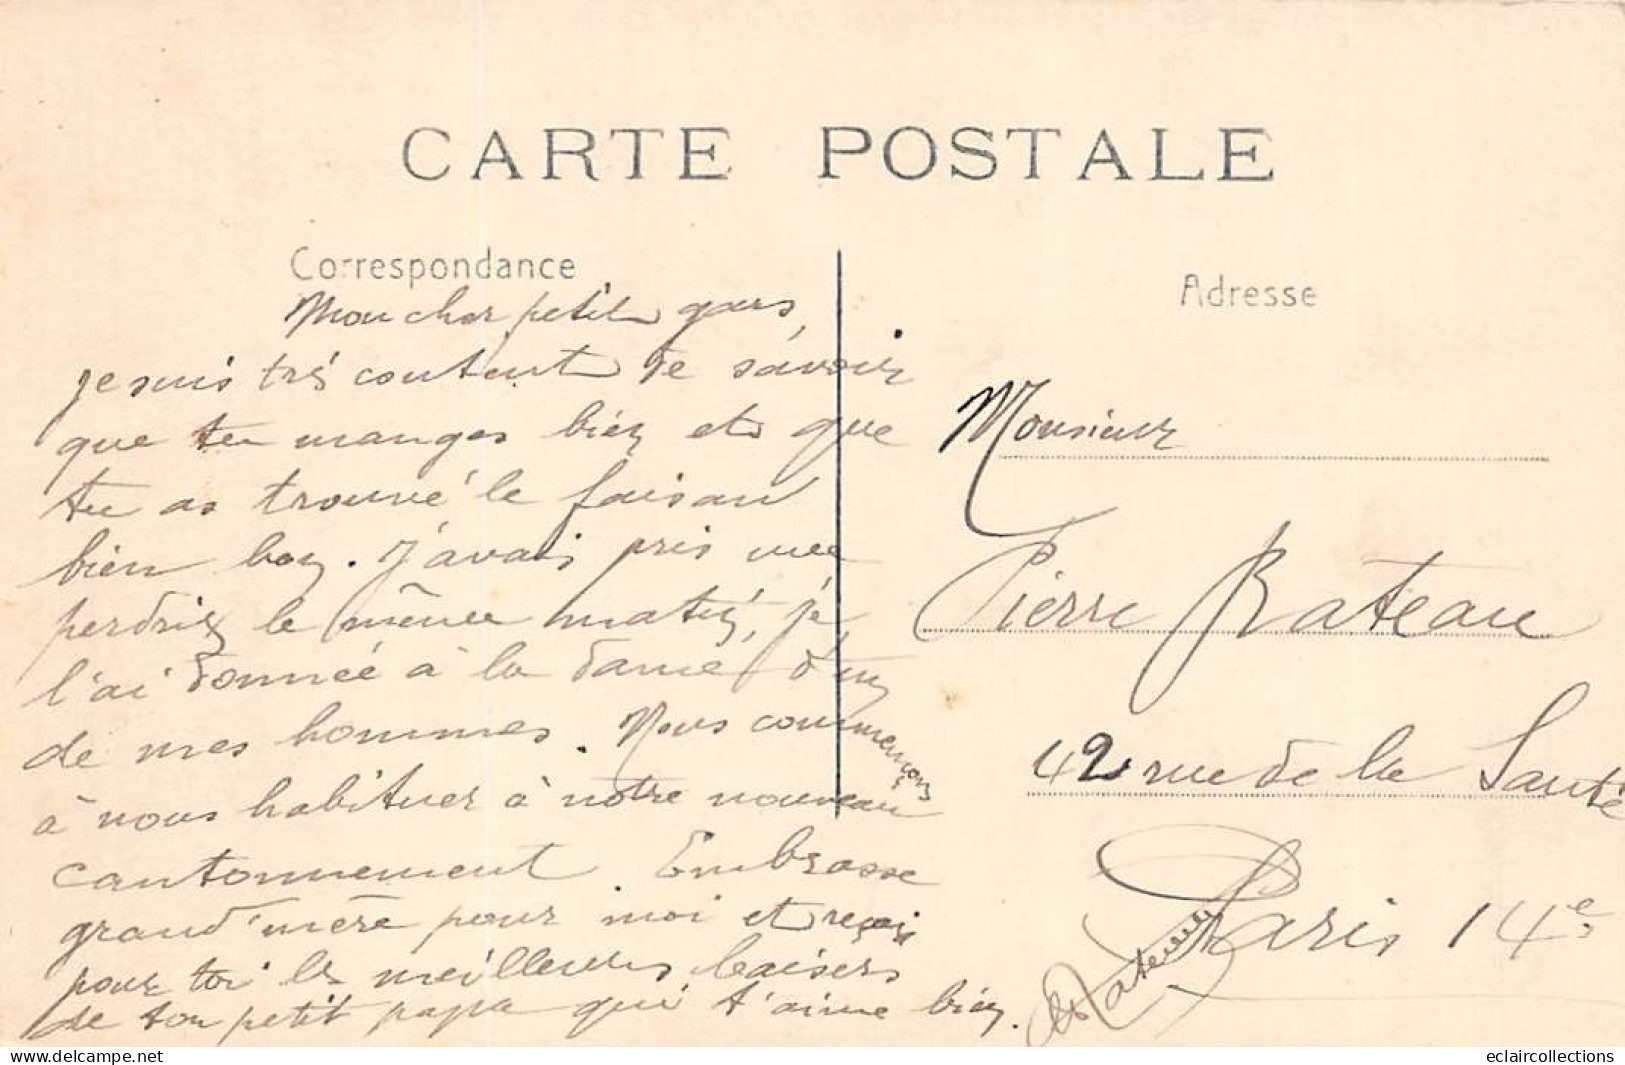 CARTE POSTALE
Correspondance
Mon cher petit gars,
je suis très content de savoir
que tu manges bien et que
tu as trouvé le faisan
bien bon. J'avais pris une
perdrix le même matin, je
l'ai donnée à la dame d'un
de mes hommes. Nous commençons
à nous habituer à notre nouveau
cantonnement. Embrasse
grand'mère pour moi et reçois
pour toi les meilleurs baisers
de ton petit papa qui t'aime bien.
Rateau
Adresse
Monsieur
Pierre Rateau
42 rue de la Santé
Paris 14e
www.delcampe.net
eclaircollections